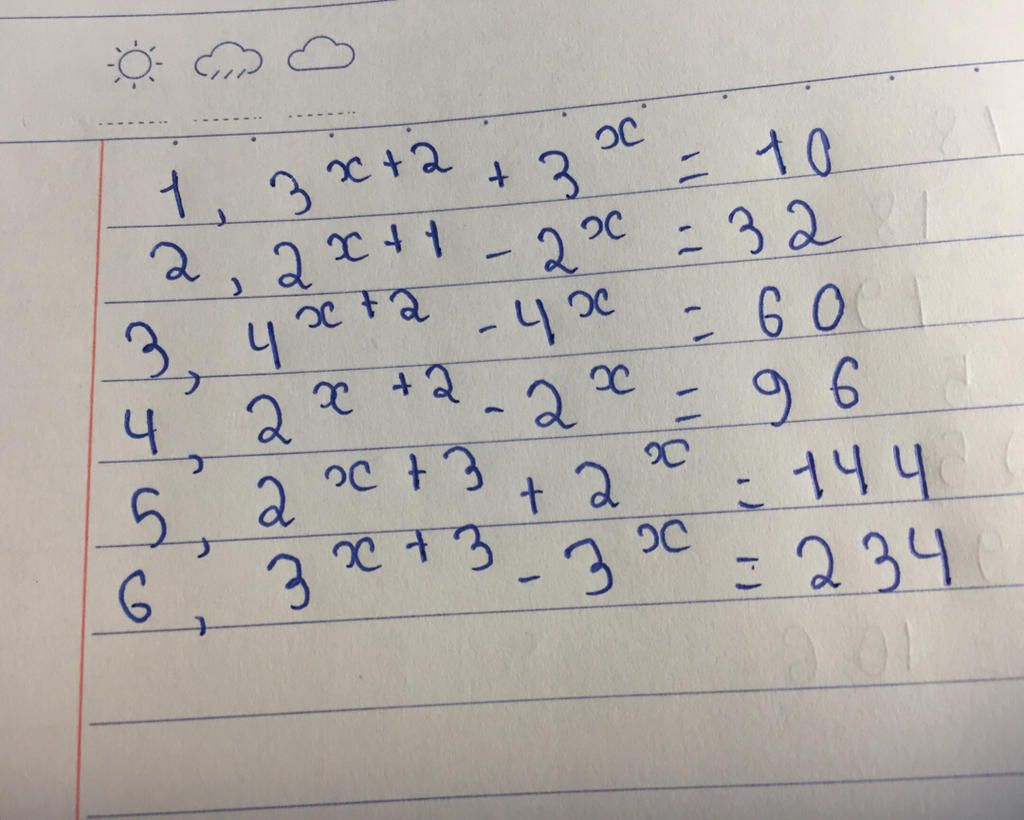 1, 3^{x+2} + 3^x = 10
2, 2^{x+1} - 2^x = 32
3, 4^{x+2} - 4^x = 60
4, 2^{x+2} - 2^x = 96
5, 2^{x+3} + 2^x = 144
6, 3^{x+3} - 3^x = 234